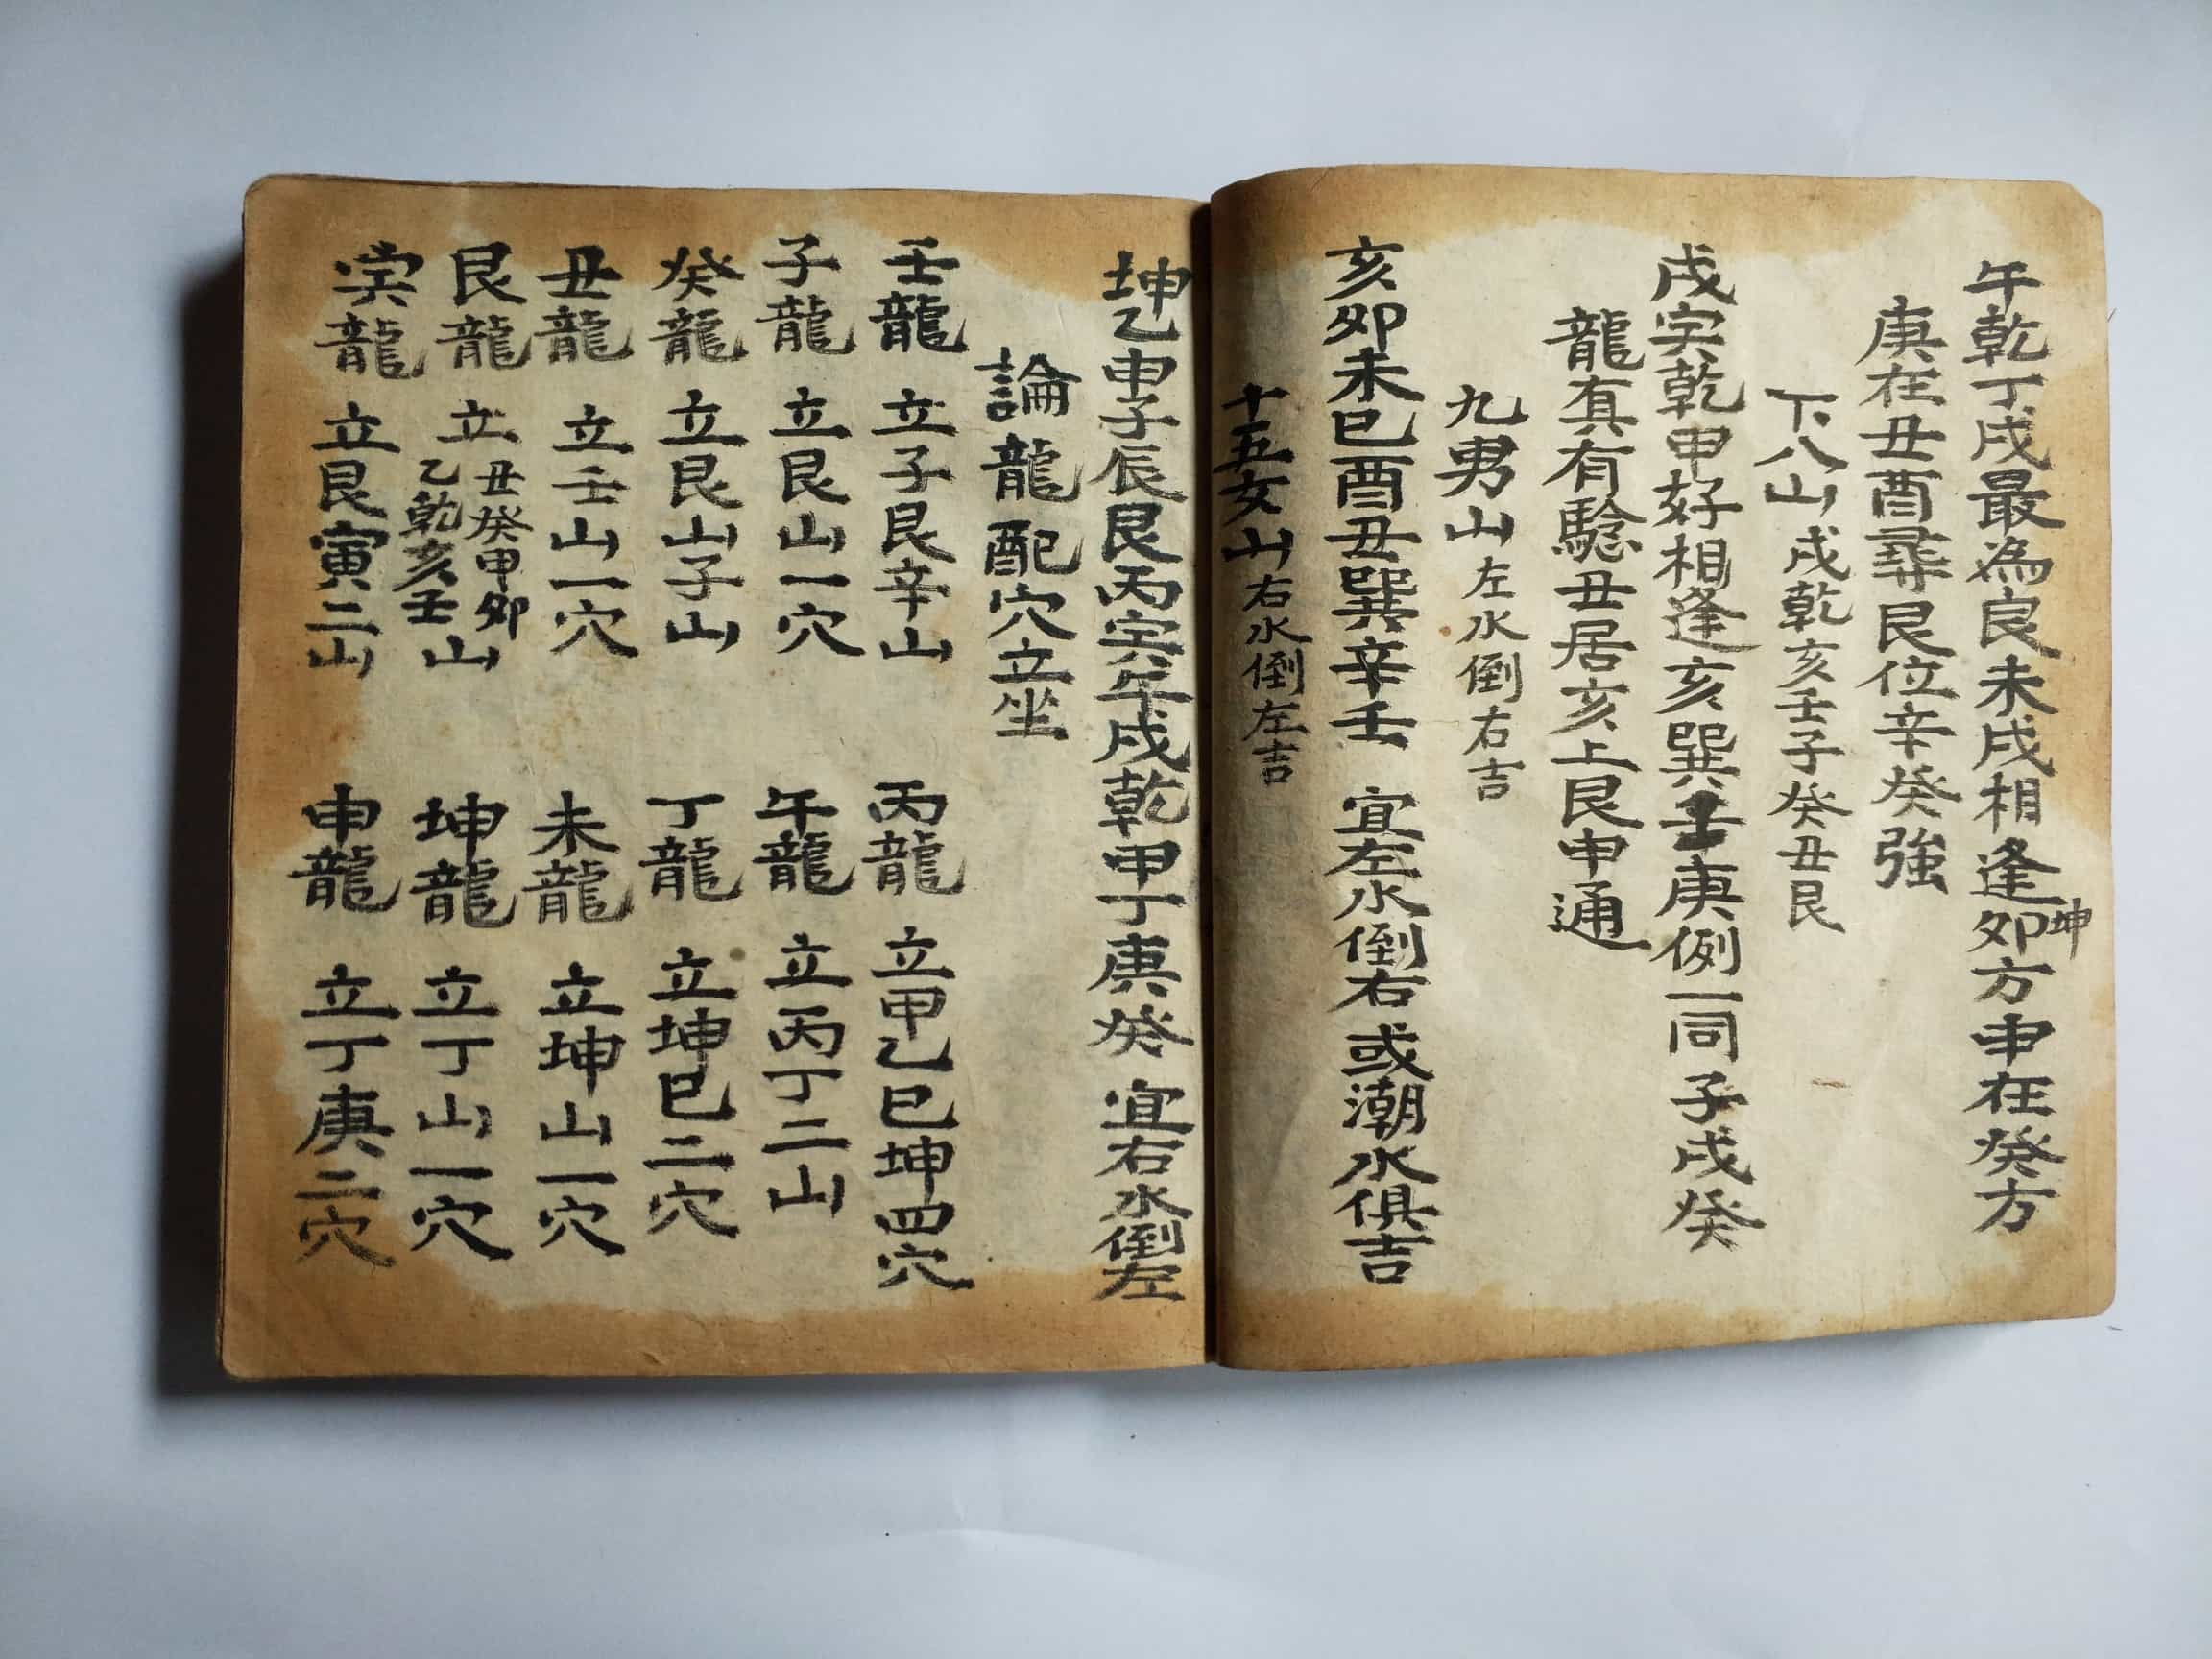 午乾丁戌最為良未戌相逢卯方申在癸方
坤
庚在丑酉尋艮位辛癸強
下八山戌乾亥壬子癸丑艮
戌寅乾申好相逢亥巽壬庚例一同子戌癸
龍真有騐丑居亥上艮申通
九男山左水倒右吉
亥卯未巳酉丑巽辛壬 宜左水倒右或潮水俱吉
十五女山右水倒左吉
坤乙申子辰艮丙寅午戌乾甲丁庚癸 宜右水倒左
論龍配穴立坐
壬龍 立子艮辛山 丙龍 立甲乙巳坤四穴
子龍 立艮山一穴 午龍 立丙丁二山
癸龍 立艮山子山 丁龍 立坤巳二穴
丑龍 立壬山一穴 未龍 立坤山一穴
艮龍 立丑癸甲卯乙乾亥壬山 坤龍 立丁山一穴
寅龍 立艮寅二山 申龍 立丁庚二穴